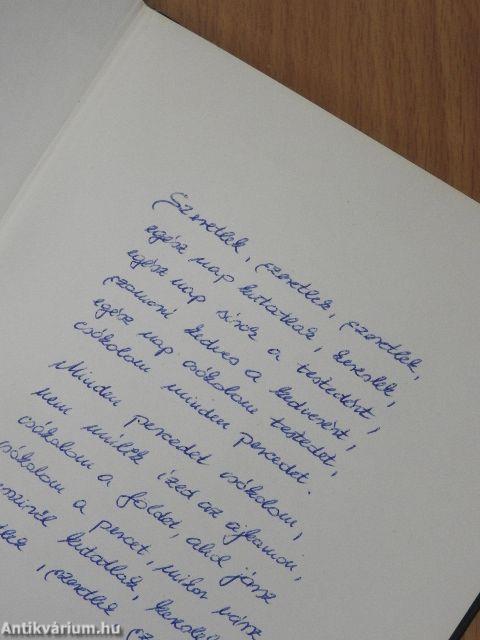 Szeretlek, szeretlek, szeretlek,
egész nap kutatlak, kereslek,
egész nap sírok a testedért,
szomorú kedves a kedvesért,
egész nap csókolom testedet,
csókolom minden percedet.
Minden percedet csókolom,
nem múlik ízed az ajkamon,
csókolom a földet, ahol jársz
csókolom a percet, mikor vársz
kutatlak, kereslek
szeretlek
Antikvárium.hu